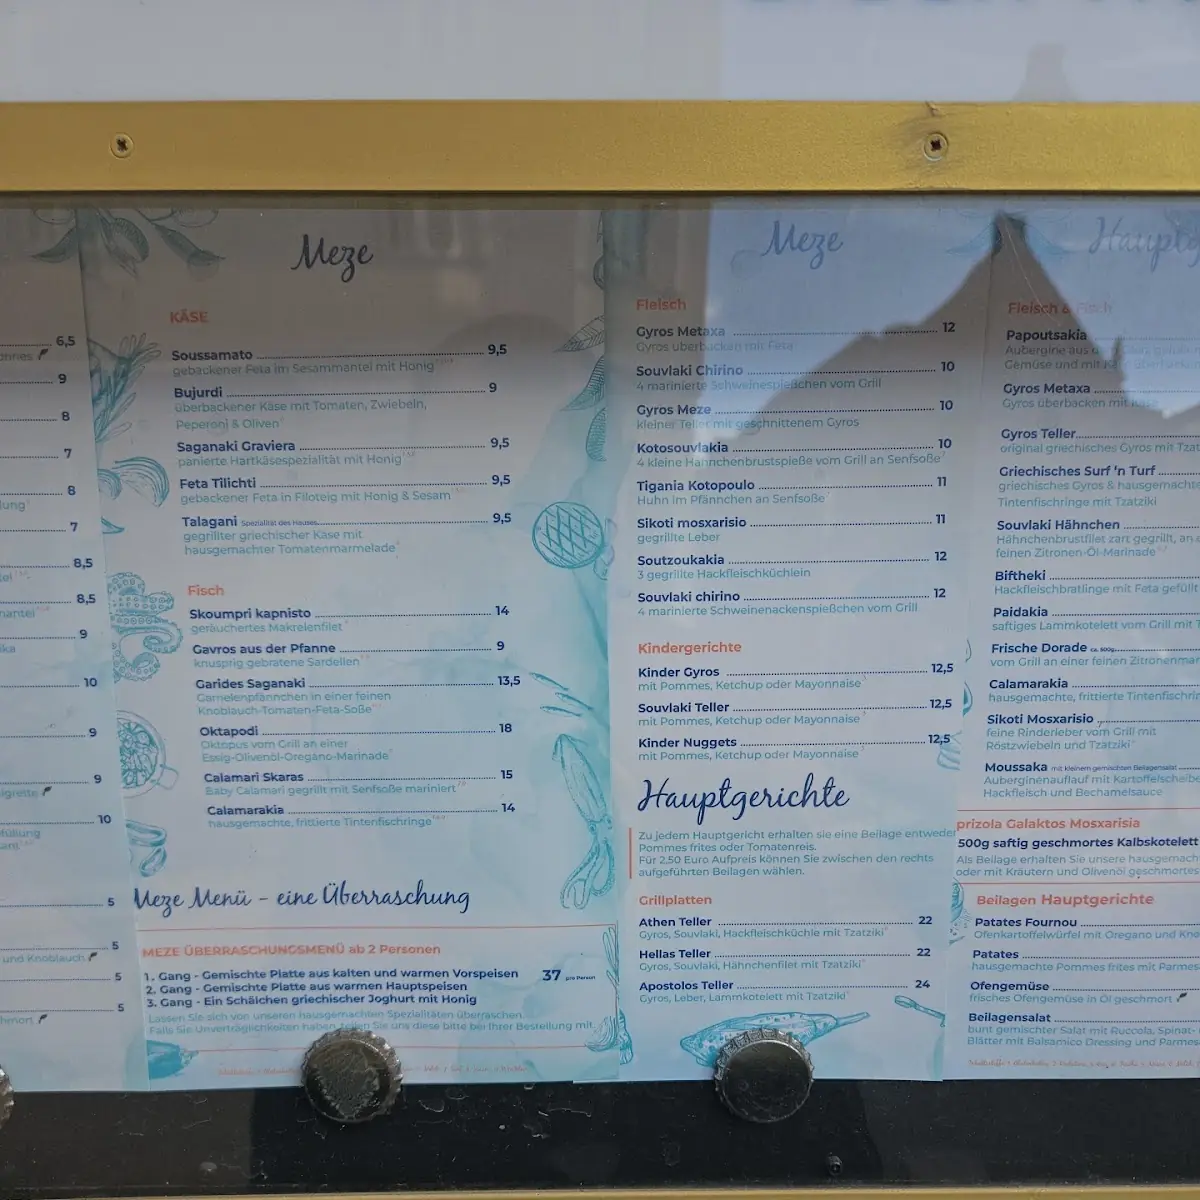 6,5
9
8
7
8
7
8,5
8,5
9
10
9
9
10
5
und Knoblauch
5
5
5
Meze
KÄSE
Soussamato 9,5
gebackener Feta im Sesammantel mit Honig
Bujurdi 9
überbackener Käse mit Tomaten, Zwiebeln,
Peperoni & Oliven
Saganaki Graviera 9,5
panierte Hartkäsespezialität mit Honig
Feta Tilichti 9,5
gebackener Feta in Filoteig mit Honig & Sesam
Talagani Spezialität des Hauses 9,5
gegrillter griechischer Käse mit
hausgemachter Tomatenmarmelade
Fisch
Skoumpri kapnisto 14
geräuchertes Makrelenfilet
Gavros aus der Pfanne 9
knusprig gebratene Sardellen
Garides Saganaki 13,5
Garnelenpfännchen in einer feinen
Knoblauch-Tomaten-Feta-Soße
Oktapodi 18
Oktopus vom Grill an einer
Essig-Olivenöl-Oregano-Marinade
Calamari Skaras 15
Baby Calamari gegrillt mit Senfsoße mariniert
Calamarakia 14
hausgemachte, frittierte Tintenfischringe
Meze Menü - eine Überraschung
MEZE ÜBERRASCHUNGSMENÜ ab 2 Personen
1. Gang - Gemischte Platte aus kalten und warmen Vorspeisen 37 pro Person
2. Gang - Gemischte Platte aus warmen Hauptspeisen
3. Gang - Ein Schälchen griechischer Joghurt mit Honig
Lassen Sie sich von unseren hausgemachten Spezialitäten überraschen.
Falls Sie Unverträglichkeiten haben teilen Sie uns diese bitte bei Ihrer Bestellung mit.
Meze
Fleisch
Gyros Metaxa 12
Gyros überbacken mit Feta
Souvlaki Chirino 10
4 marinierte Schweinespießchen vom Grill
Gyros Meze 10
kleiner Teller mit geschnittenem Gyros
Kotosouvlakia 10
4 kleine Hähnchenbrustspieße vom Grill an Senfsoße
Tigania Kotopoulo 11
Huhn im Pfännchen an Senfsoße
Sikoti mosxarisio 11
gegrillte Leber
Soutzoukakia 12
3 gegrillte Hackfleischküchlein
Souvlaki chirino 12
4 marinierte Schweinenackenspießchen vom Grill
Kindergerichte
Kinder Gyros 12,5
mit Pommes, Ketchup oder Mayonnaise
Souvlaki Teller 12,5
mit Pommes, Ketchup oder Mayonnaise
Kinder Nuggets 12,5
mit Pommes, Ketchup oder Mayonnaise
Hauptgerichte
Zu jedem Hauptgericht erhalten sie eine Beilage entweder
Pommes frites oder Tomatenreis.
Für 2,50 Euro Aufpreis können Sie zwischen den rechts
aufgeführten Beilagen wählen.
Grillplatten
Athen Teller 22
Gyros, Souvlaki, Hackfleischküchle mit Tzatziki
Hellas Teller 22
Gyros, Souvlaki, Hähnchenfilet mit Tzatziki
Apostolos Teller 24
Gyros, Leber, Lammkotelett mit Tzatziki
Fleisch & Fisch
Papoutsakia
Aubergine aus
Gemüse und mit
Gyros Metaxa
Gyros überbacken mit Käse
Gyros Teller
original griechisches Gyros mit
Griechisches Surf 'n Turf
griechisches Gyros & hausgemachte
Tintenfischringe mit Tzatziki
Souvlaki Hähnchen
Hähnchenbrustfilet zart gegrillt, an
feinen Zitronen-Öl-Marinade
Biftheki
Hackfleischbratlinge mit Feta gefüllt
Paidakia
saftiges Lammkotelett vom Grill mit
Frische Dorade ca. 500g
vom Grill an einer feinen
Calamarakia
hausgemachte, frittierte
Sikoti Mosxarisio
feine Rinderleber vom Grill mit
Röstzwiebeln und Tzatziki
Moussaka mit kleinem gemischten Beilagensalat
Auberginenauflauf mit
Hackfleisch und Bechamelsauce
prizola Galaktos Mosxarisia
500g saftig geschmortes Kalbskotelett
Als Beilage erhalten Sie unsere
oder mit Kräutern und Olivenöl geschmortes
Beilagen Hauptgerichte
Patates Fournou
Ofenkartoffelwürfel mit Oregano und
Patates
hausgemachte Pommes frites mit
Ofengemüse
frisches Ofengemüse in Öl geschmort
Beilagensalat
bunt gemischter Salat mit Ruccola, Spinat-
Blätter mit Balsamico Dressing und